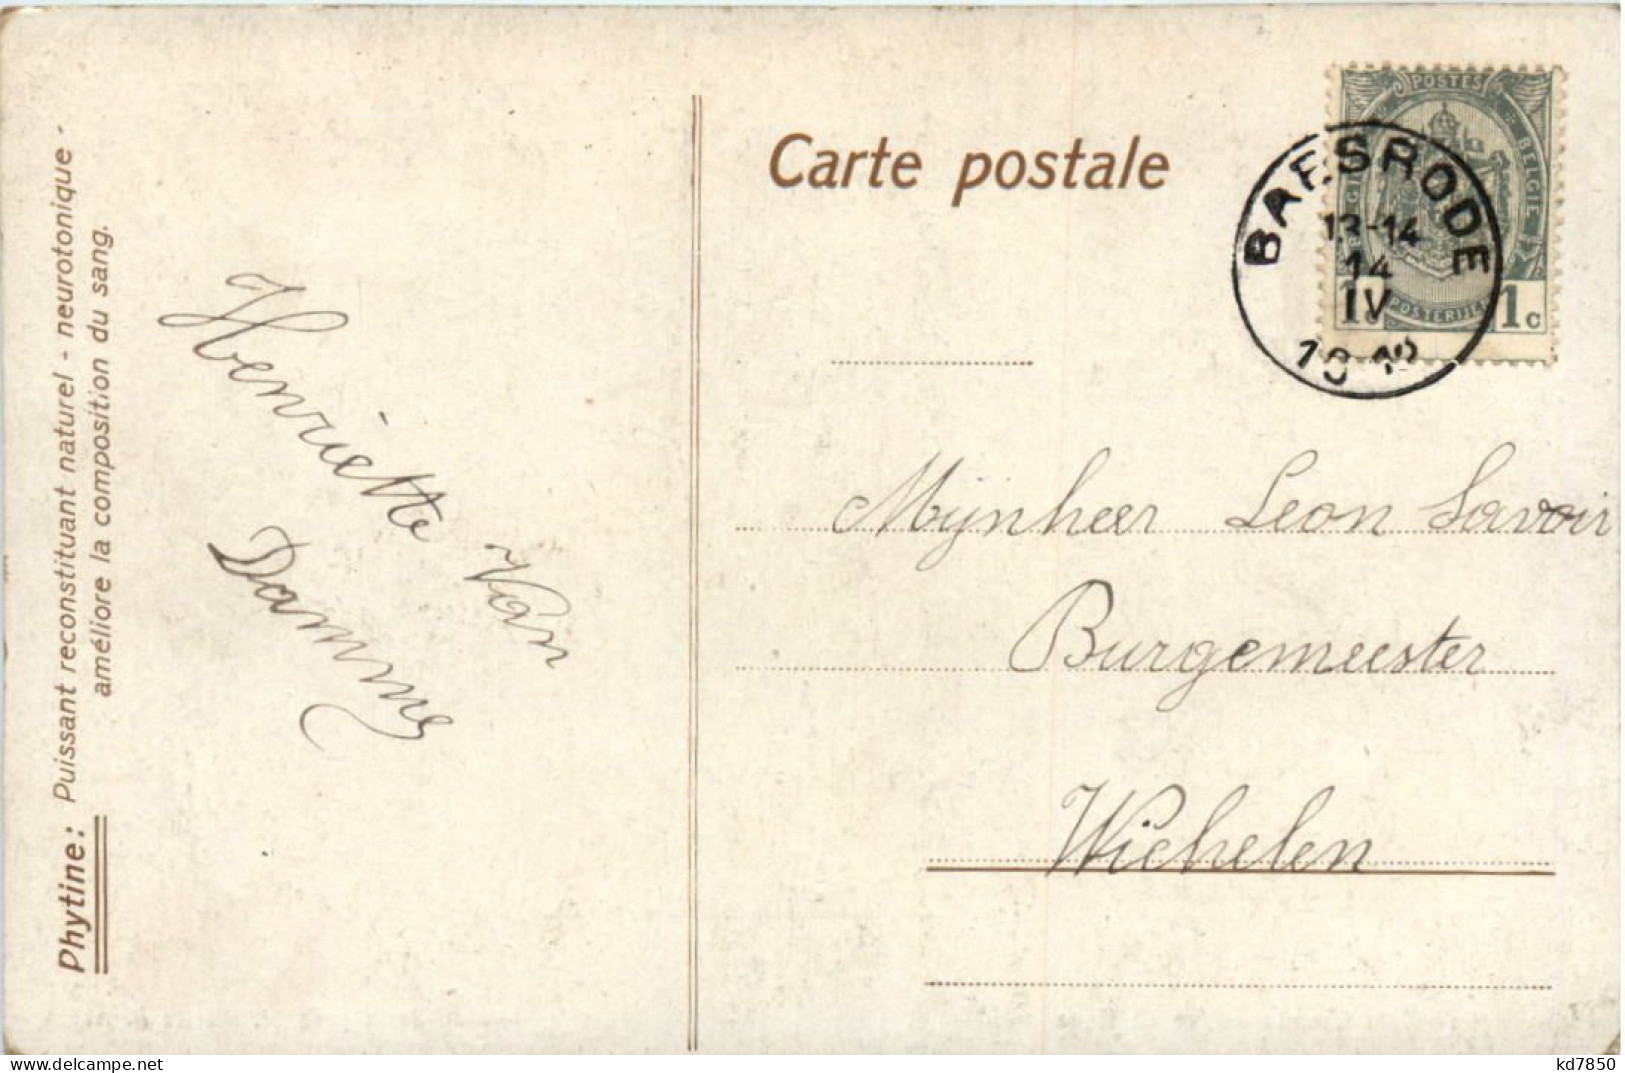 Phytine: Puissant reconstituant naturel - neurotonique -
améliore la composition du sang.
Henriette Van
Damme
Carte postale
POSTES
BELGIE
POSTERIJEN
1c
BAESRODE
13-14
14
IV
Mijnheer Leon Savoir
Burgemeester
Wichelen
www.delcampe.net
kd7850